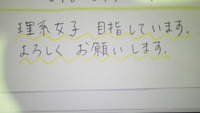 理系女子 目指しています。
よろしく お願いします.